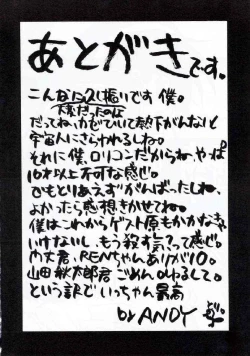 あとがきです。
こんなに久し描いです僕。
大変だったのよ
だってね、力をぬいて熱下がんないと
宇宙人にさらわれるしね。
それに僕、ロリコンだからね、やっぱ
10才以上不可な感じ。
でもとりあえずがんばったしね、
よかったら感想きかせてね。
僕はこれからゲスト原もかかなきゃ
いけないし、もう殺す気?って感じ。
内大君、RENちゃんありがリ10。
山田秋太郎君ごめんのゆるして。
という訳でいっちゃん最高
by ANDY